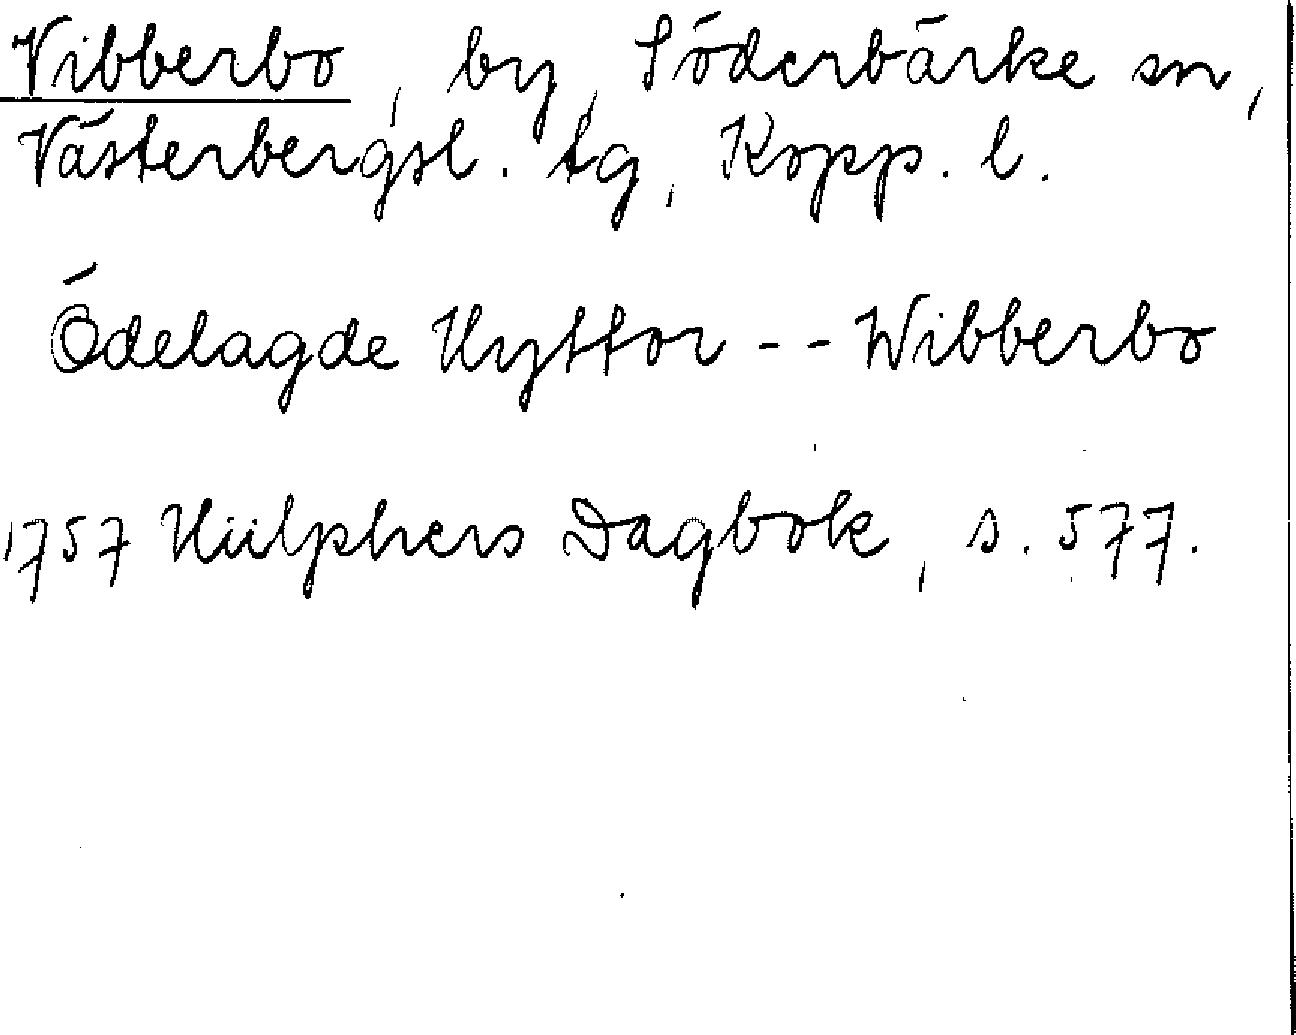 Vibberbo, by, Söderbärke sn,
Västerbergsl. tg, Kopp. l.
Ödelagde Hyttor -- Wibberbo
1757 Hülphers Dagbok, s. 577.